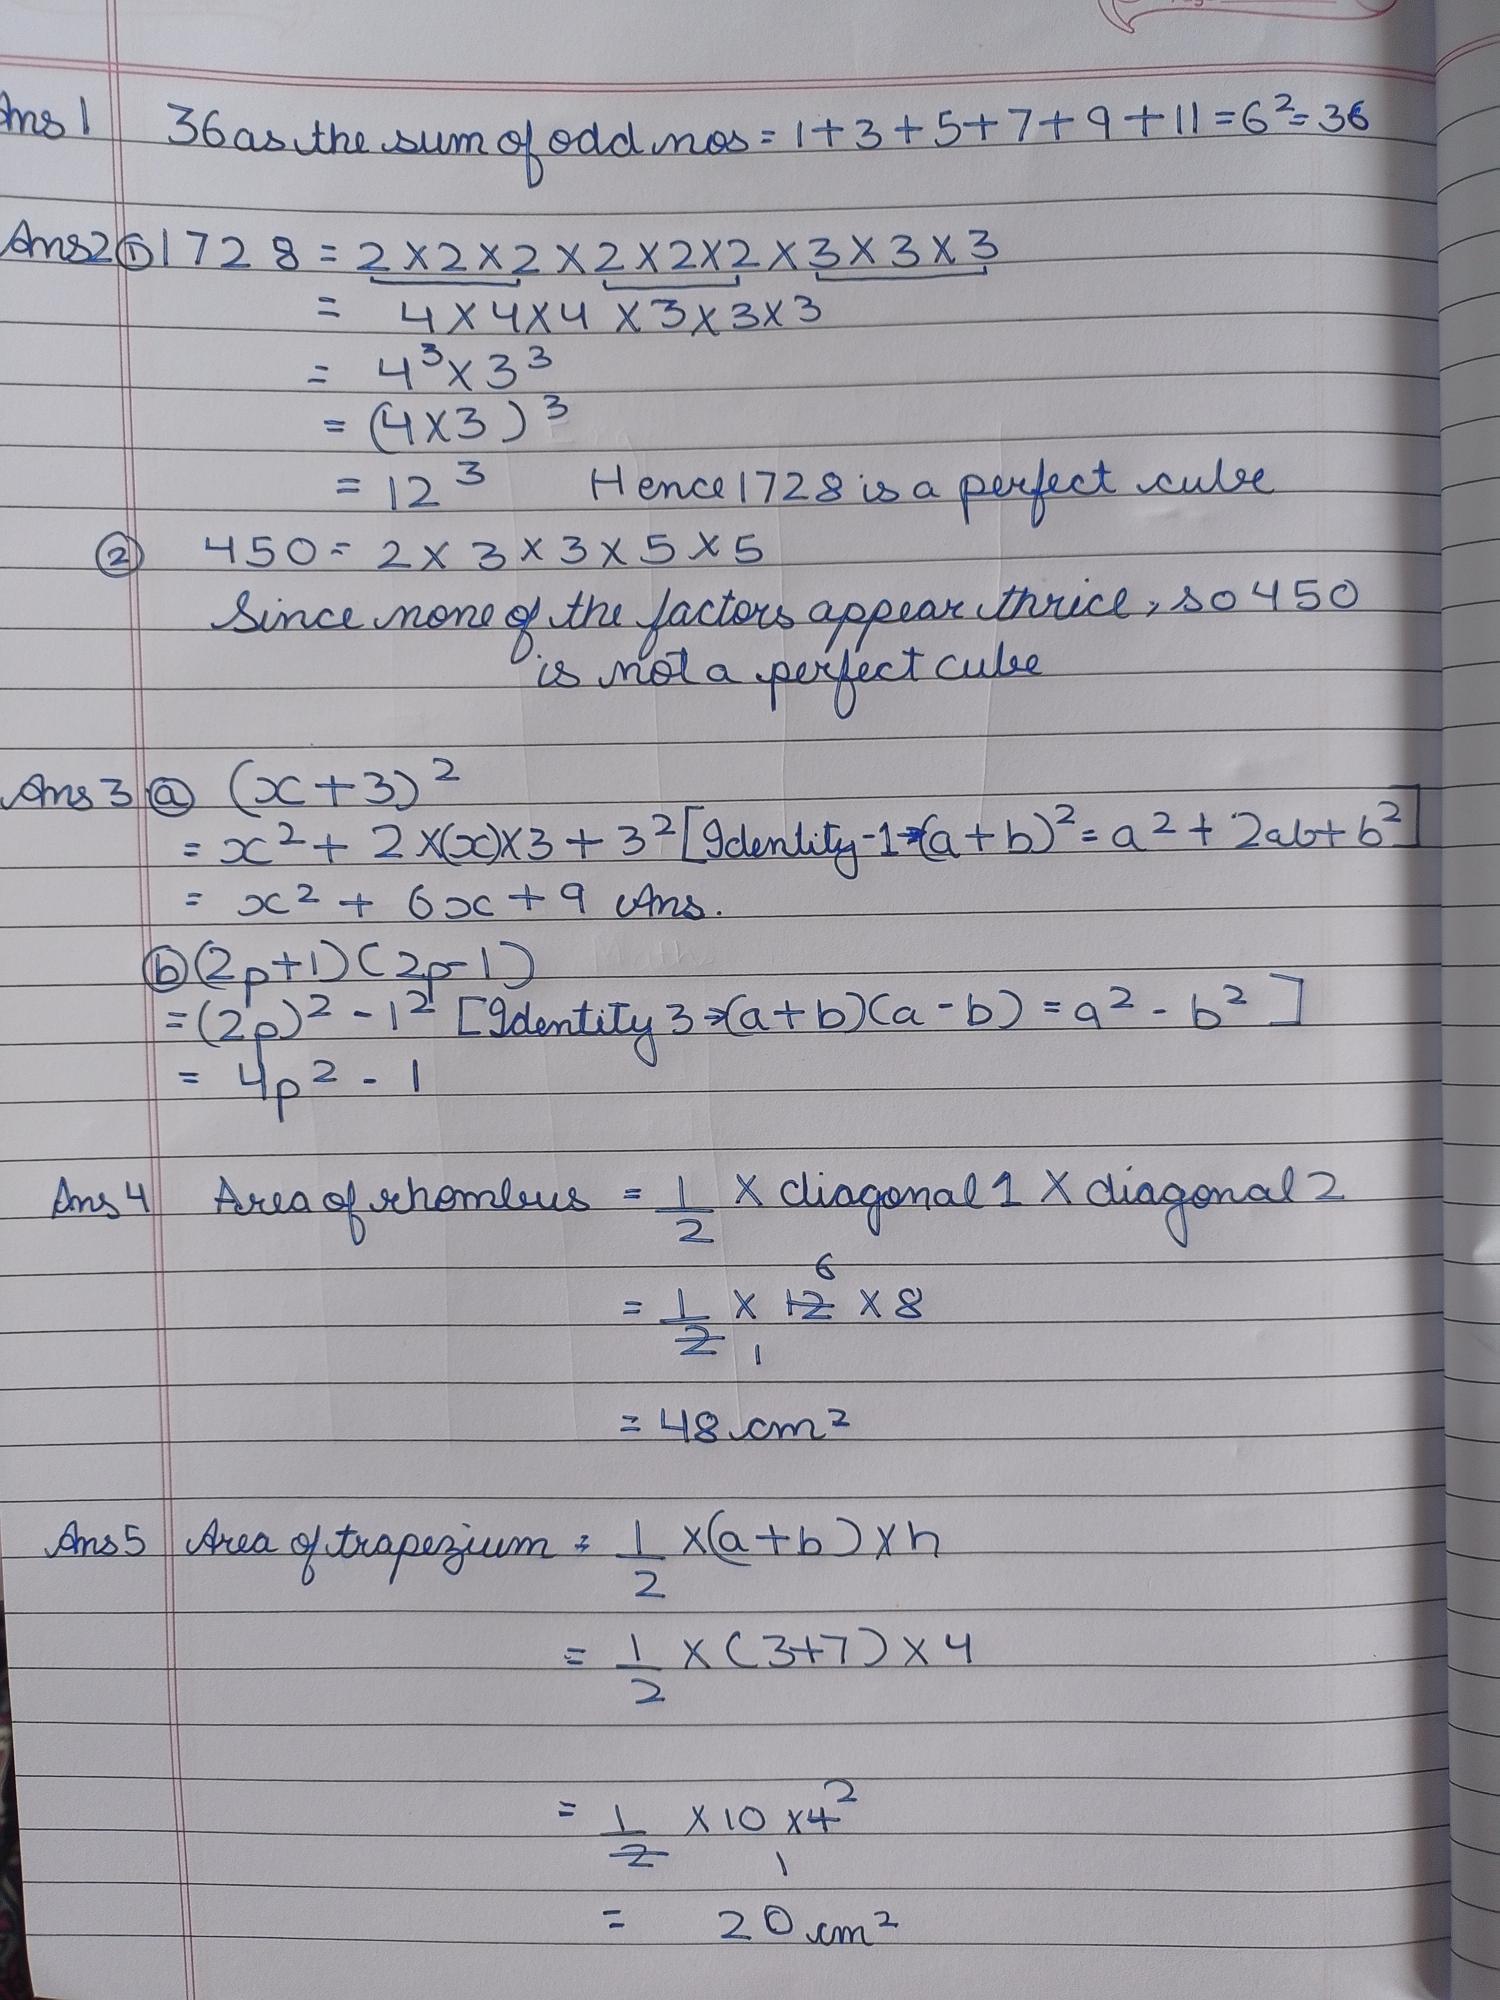 Ans 1 36 as the sum of odd nos = 1+3+5+7+9+11=6²=36
Ans2① 1728 = 2×2×2×2×2×2×3×3×3
= 4×4×4×3×3×3
= 4³×3³
= (4×3)³
= 12³ Hence 1728 is a perfect cube
② 450= 2×3×3×5×5
Since none of the factors appear thrice, so 450
is not a perfect cube
Ans 3 ⓐ (x+3)²
= x²+ 2×(x)×3+3² [Identity-1⇒(a+b)²=a²+2ab+b²]
= x² + 6x+9 Ans.
ⓑ(2p+1)(2p-1)
=(2p)²-1² [Identity 3⇒(a+b)(a-b)=a²-b²]
= 4p²-1
Ans 4 Area of rhombus = 1/2 × diagonal 1 × diagonal 2
6
= 1/2 × 12 × 8
1
= 48 cm²
Ans 5 Area of trapezium = 1/2 ×(a+b)×h
= 1/2 ×(3+7)×4
2
= 1/2 ×10×4
1
= 20 cm²